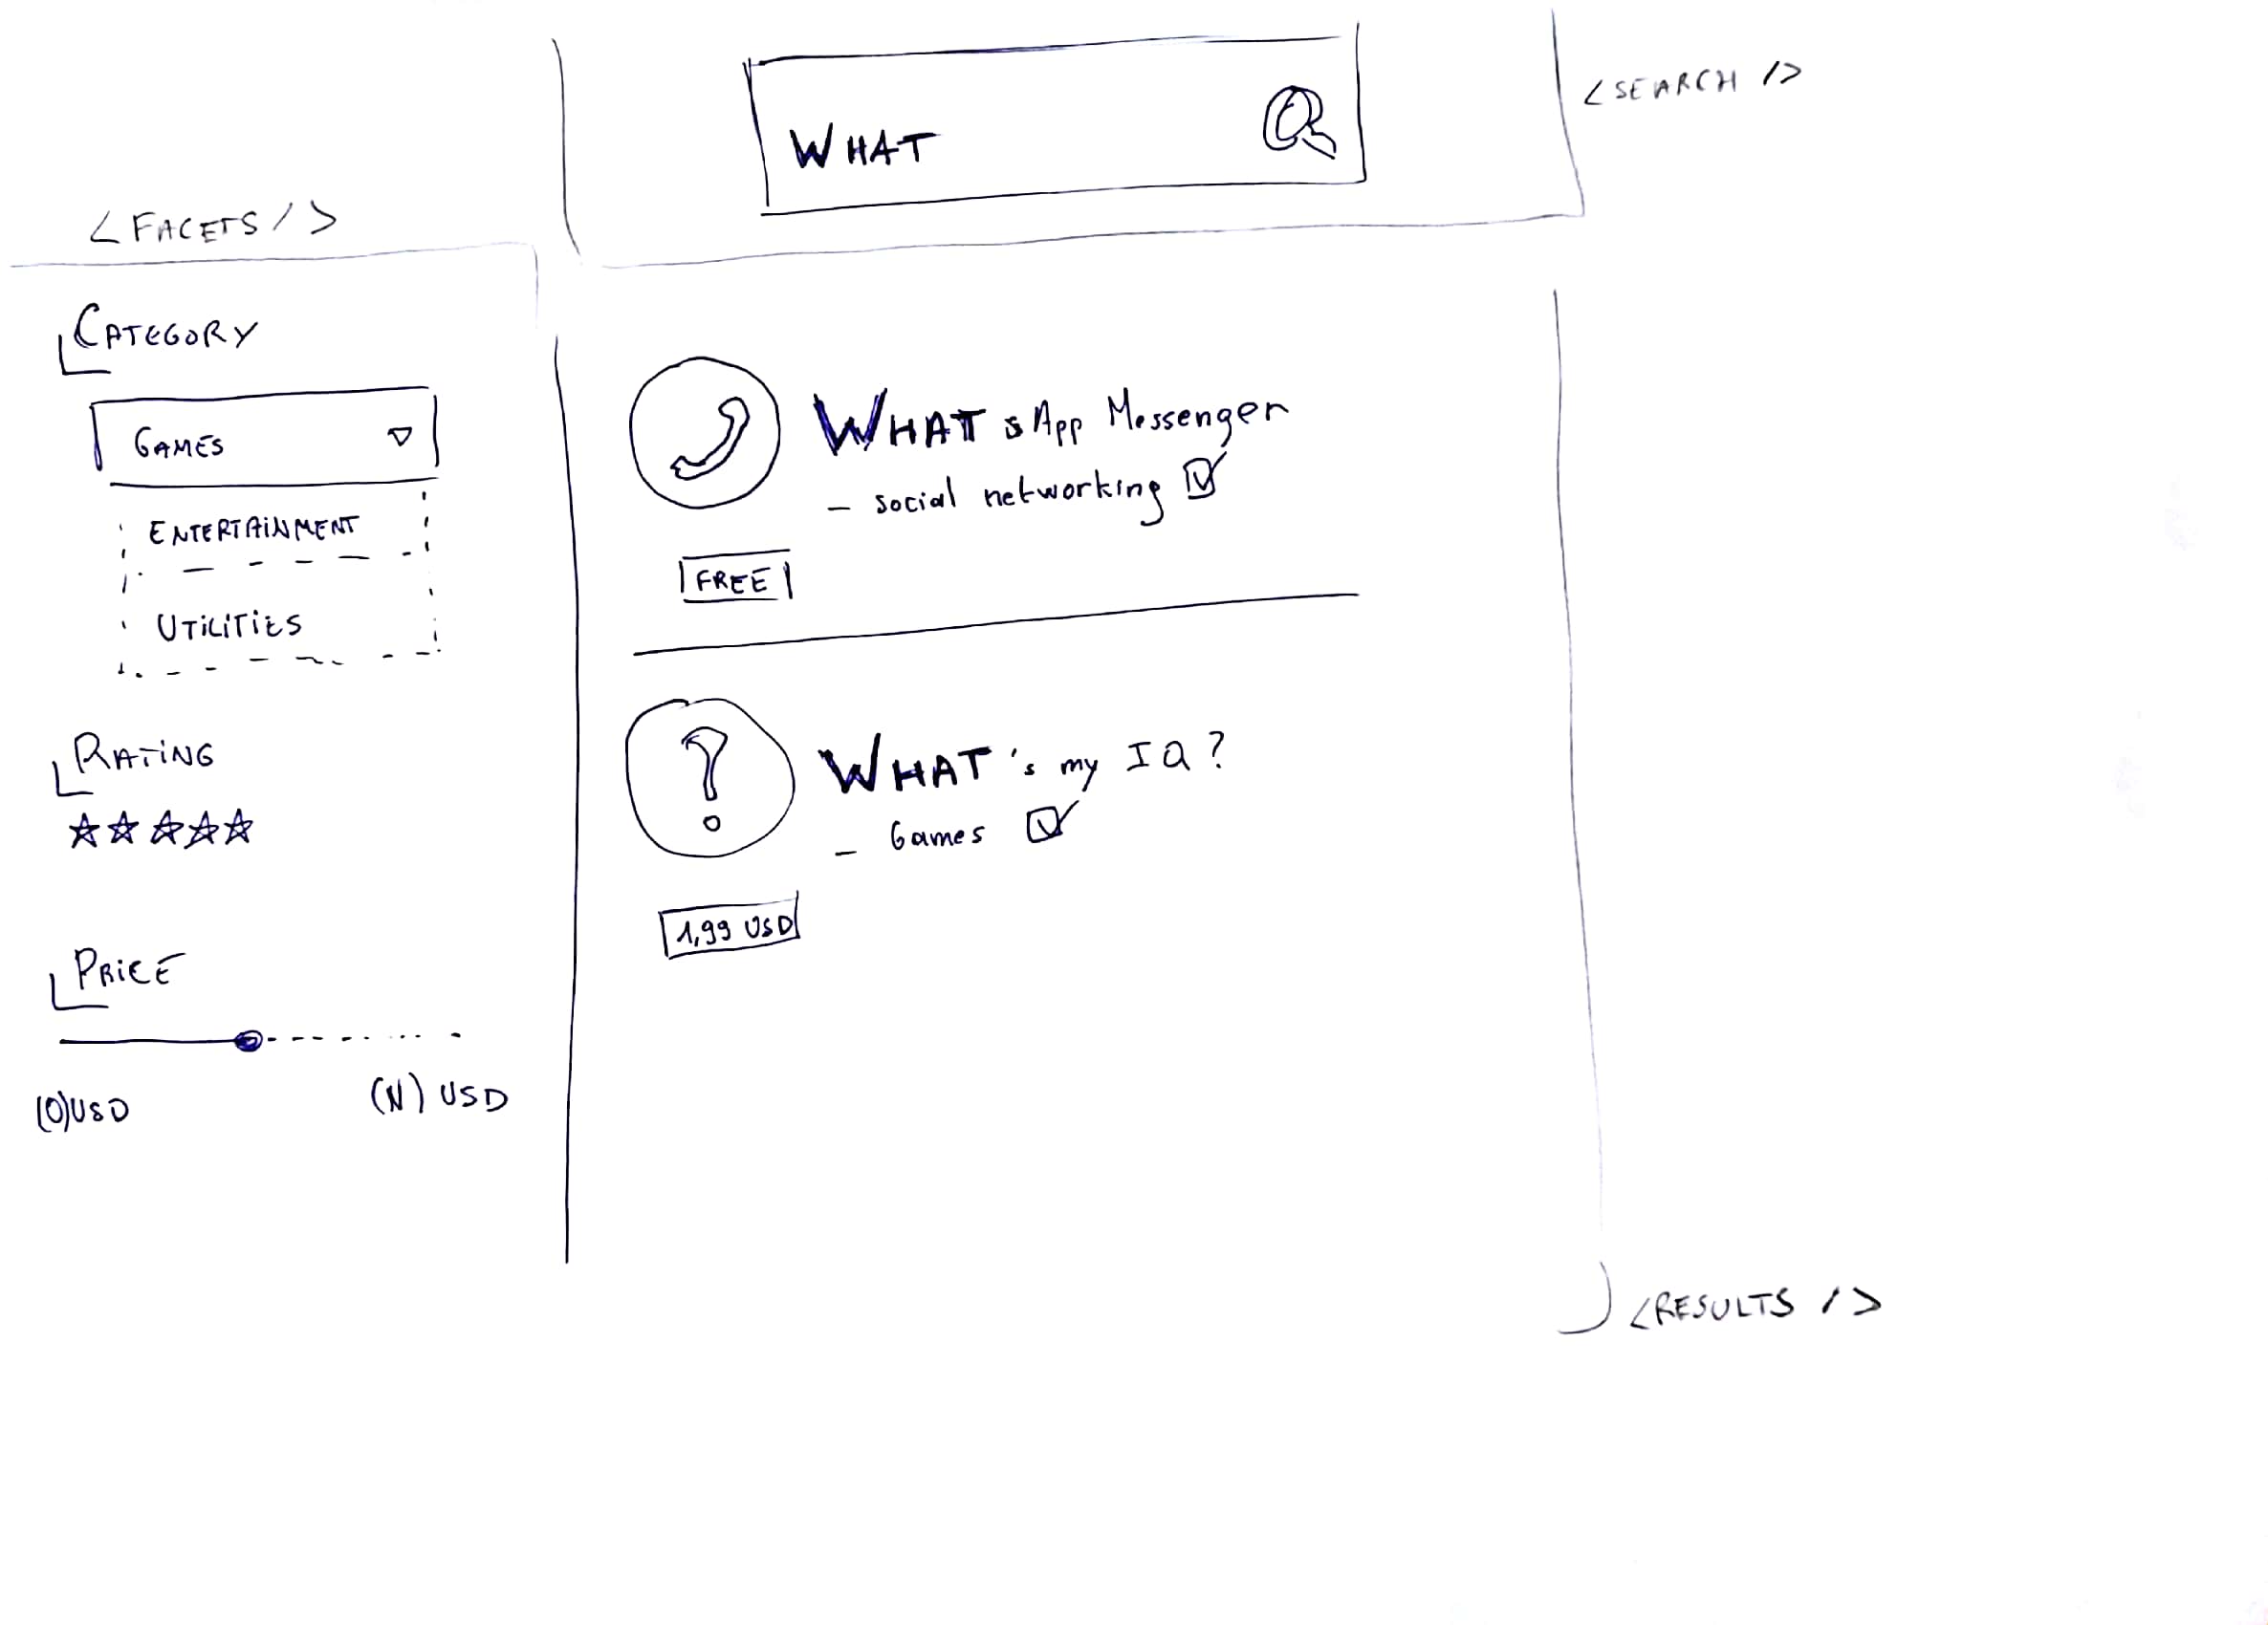 <SEARCH />
WHAT
<FACETS />
CATEGORY
GAMES
ENTERTAINMENT
UTILITIES
RATING
PRICE
(0)USD
(N) USD
WHATsApp Messenger
- social networking
FREE
WHAT's my IQ?
- Games
1,99 USD
<RESULTS />